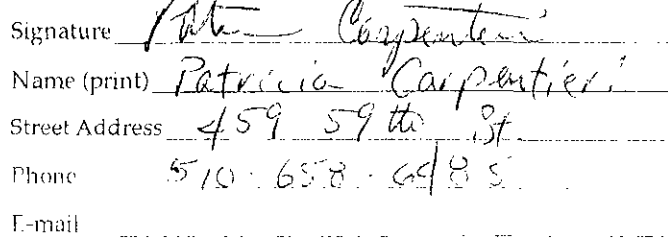 Signature Carpentieri
Name (print) Patricia Carpentieri
Street Address 459 59th St.
Phone 510.658.6485
E-mail